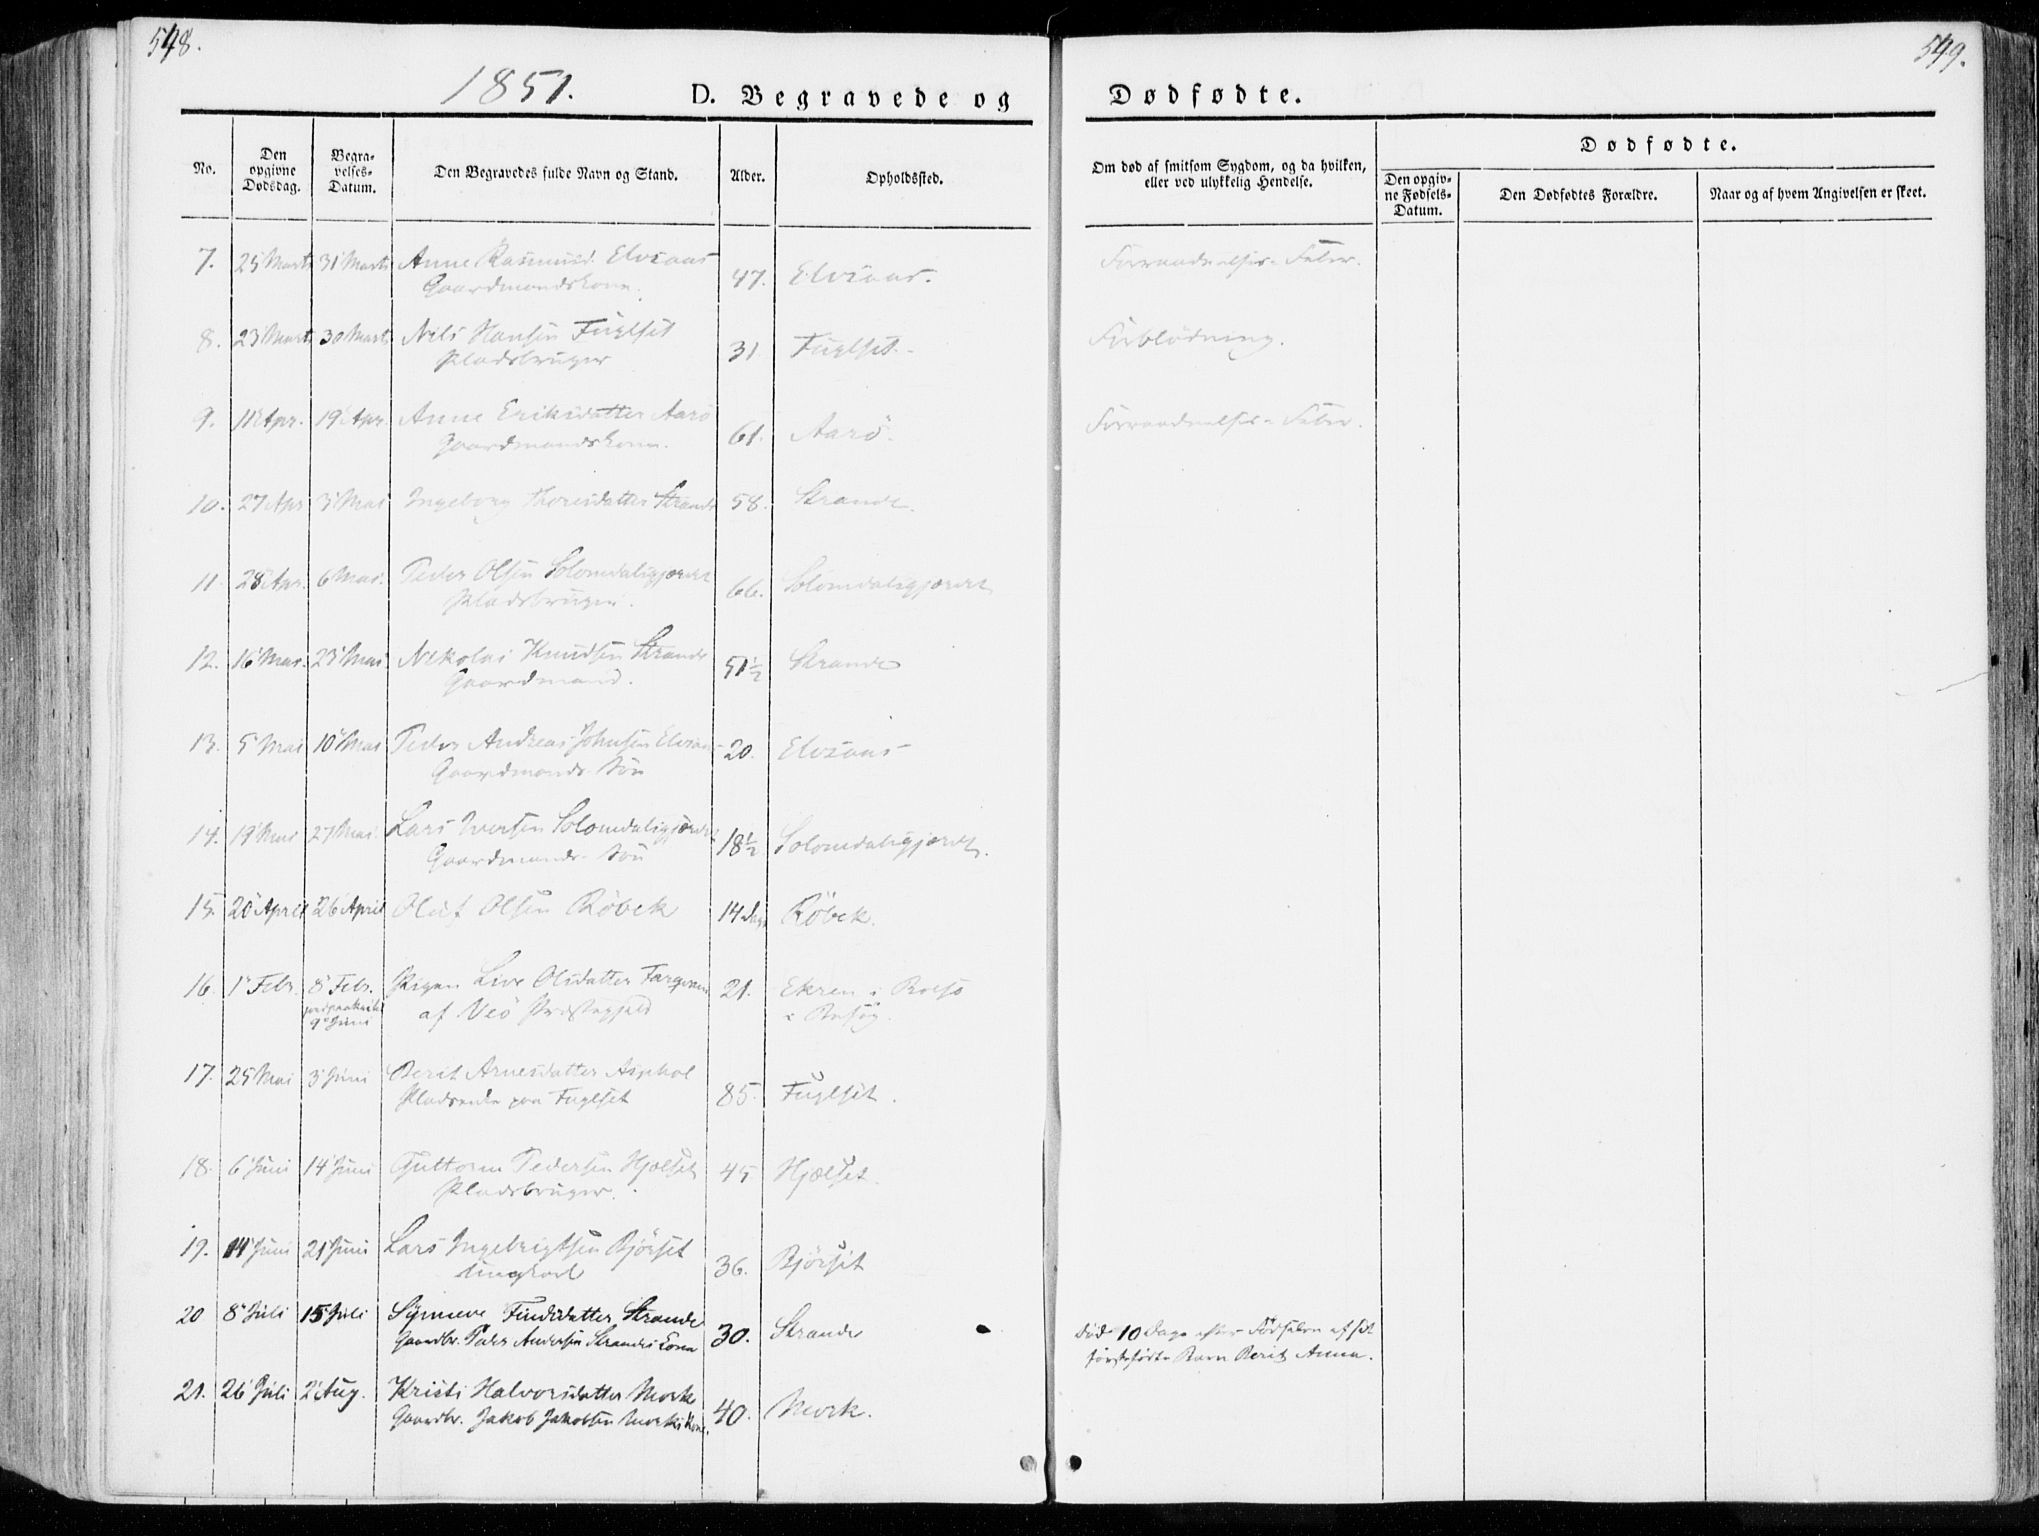 548.
549.
1851.
D. Begravede og
Dødfødte.
No.
Den opgivne Dødsdag.
Begravelses-Datum.
Den Begravedes fulde Navn og Stand.
Alder.
Opholdssted.
Om død af smitsom Sygdom, og da hvilken,
eller ved ulykkelig Hendelse.
Dødfødte.
Den opgivne Fødsels-Datum.
Den Dødfødtes Forældre.
Naar og af hvem Angivelsen er skeet.
7. 25 Marts 31 Marts Anne Rasmusd. Elvsaas 47. Elvsaas. Forraadnelses-Feber.
Gaardmandskone.
8. 23 Marts 30 Marts Nils Hansen Fuglset 31 Fuglset. Forblödning.
Pladsbruger
9. 11 Apr. 19 Apr. Anne Eriksdatter Aarö 61. Aarö. Forraadnelses-Feber.
Gaardmandskone.
10. 27 Apr 3 Mai Ingeborg Thoresdatter Strande 58. Strande.
11. 28 Apr. 6 Mai. Peder Olsen Solomdalsgjærdet 66. Solomdalsgjærdet
Pladsbruger.
12. 16 Mai. 23 Mai Nikolai Knudsen Strande 51½ Strande
Gaardmand.
13. 5 Mai 10 Mai Peder Andreas Johnsen Elvsaas 20. Elvsaas
Gaardmands Sön
14. 19 Mai 27 Mai. Lars Iversen Solomdalsgjærdet 18½ Solomdalsgjærdet.
Gaardmands Sön
15. 20 April 26 April Oluf Olsen Röbek 14 Dage Röbek.
16. 1 Febr. 8 Febr. Pigen Live Olsdatter 21. Ekren i Bolsö
9 Juni af Veö Præstegjeld i Besög.
17. 25 Mai 3 Juni Berit Arnesdatter Asphol 85. Fuglset.
Pladsenke paa Fuglset
18. 6 Juni 14 Juni Guttorm Pedersen Hjelset 45 Hjælset.
Pladsbruger.
19. 14 Juni 21 Juni Lars Ingebrigtsen Bjørset 36. Bjørset
Ungkarl
20 8 Juli 15 Juli Synneve Findsdatter Strande 30. Strande Död 10 Dage efter Födselen af sit
Gaardbr. Peder Andersen Strandes Kone förstefödte Barn Berit Anna.
21. 26 Juli 2 Aug. Kristi Halvorsdatter Mork 40. Mork.
Gaardbr. Jakob Jakobsen Morks Kone.